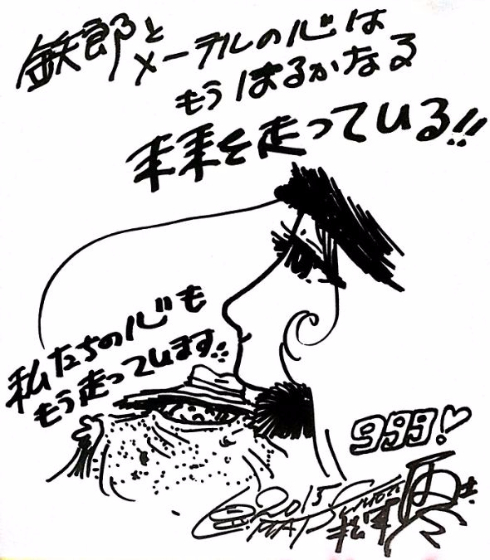 鉄郎と
メーテルの心は
もうはるかなる
未来を走っている!!
私たちの心も
もう走っています!!
999!♡
©2015
松本